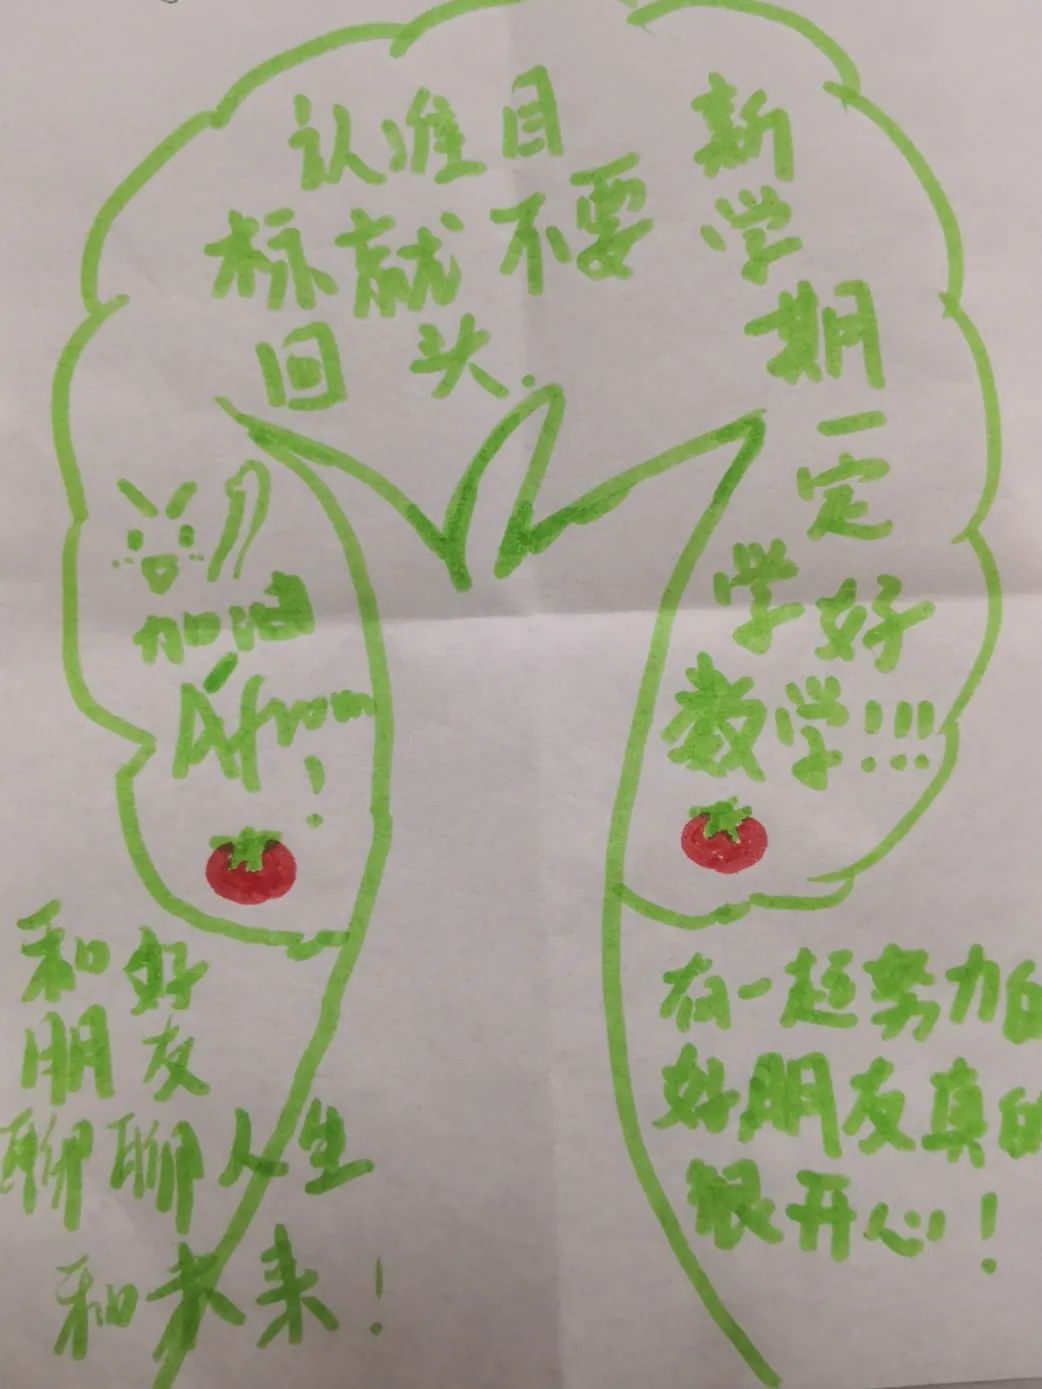 认准目
标就不要
回头.
新
学
期
一
定
学好
数学!!!
加油
Afrom
!
和好
朋友
聊聊人生
和未来!
有一起努力的
好朋友真的
很开心!